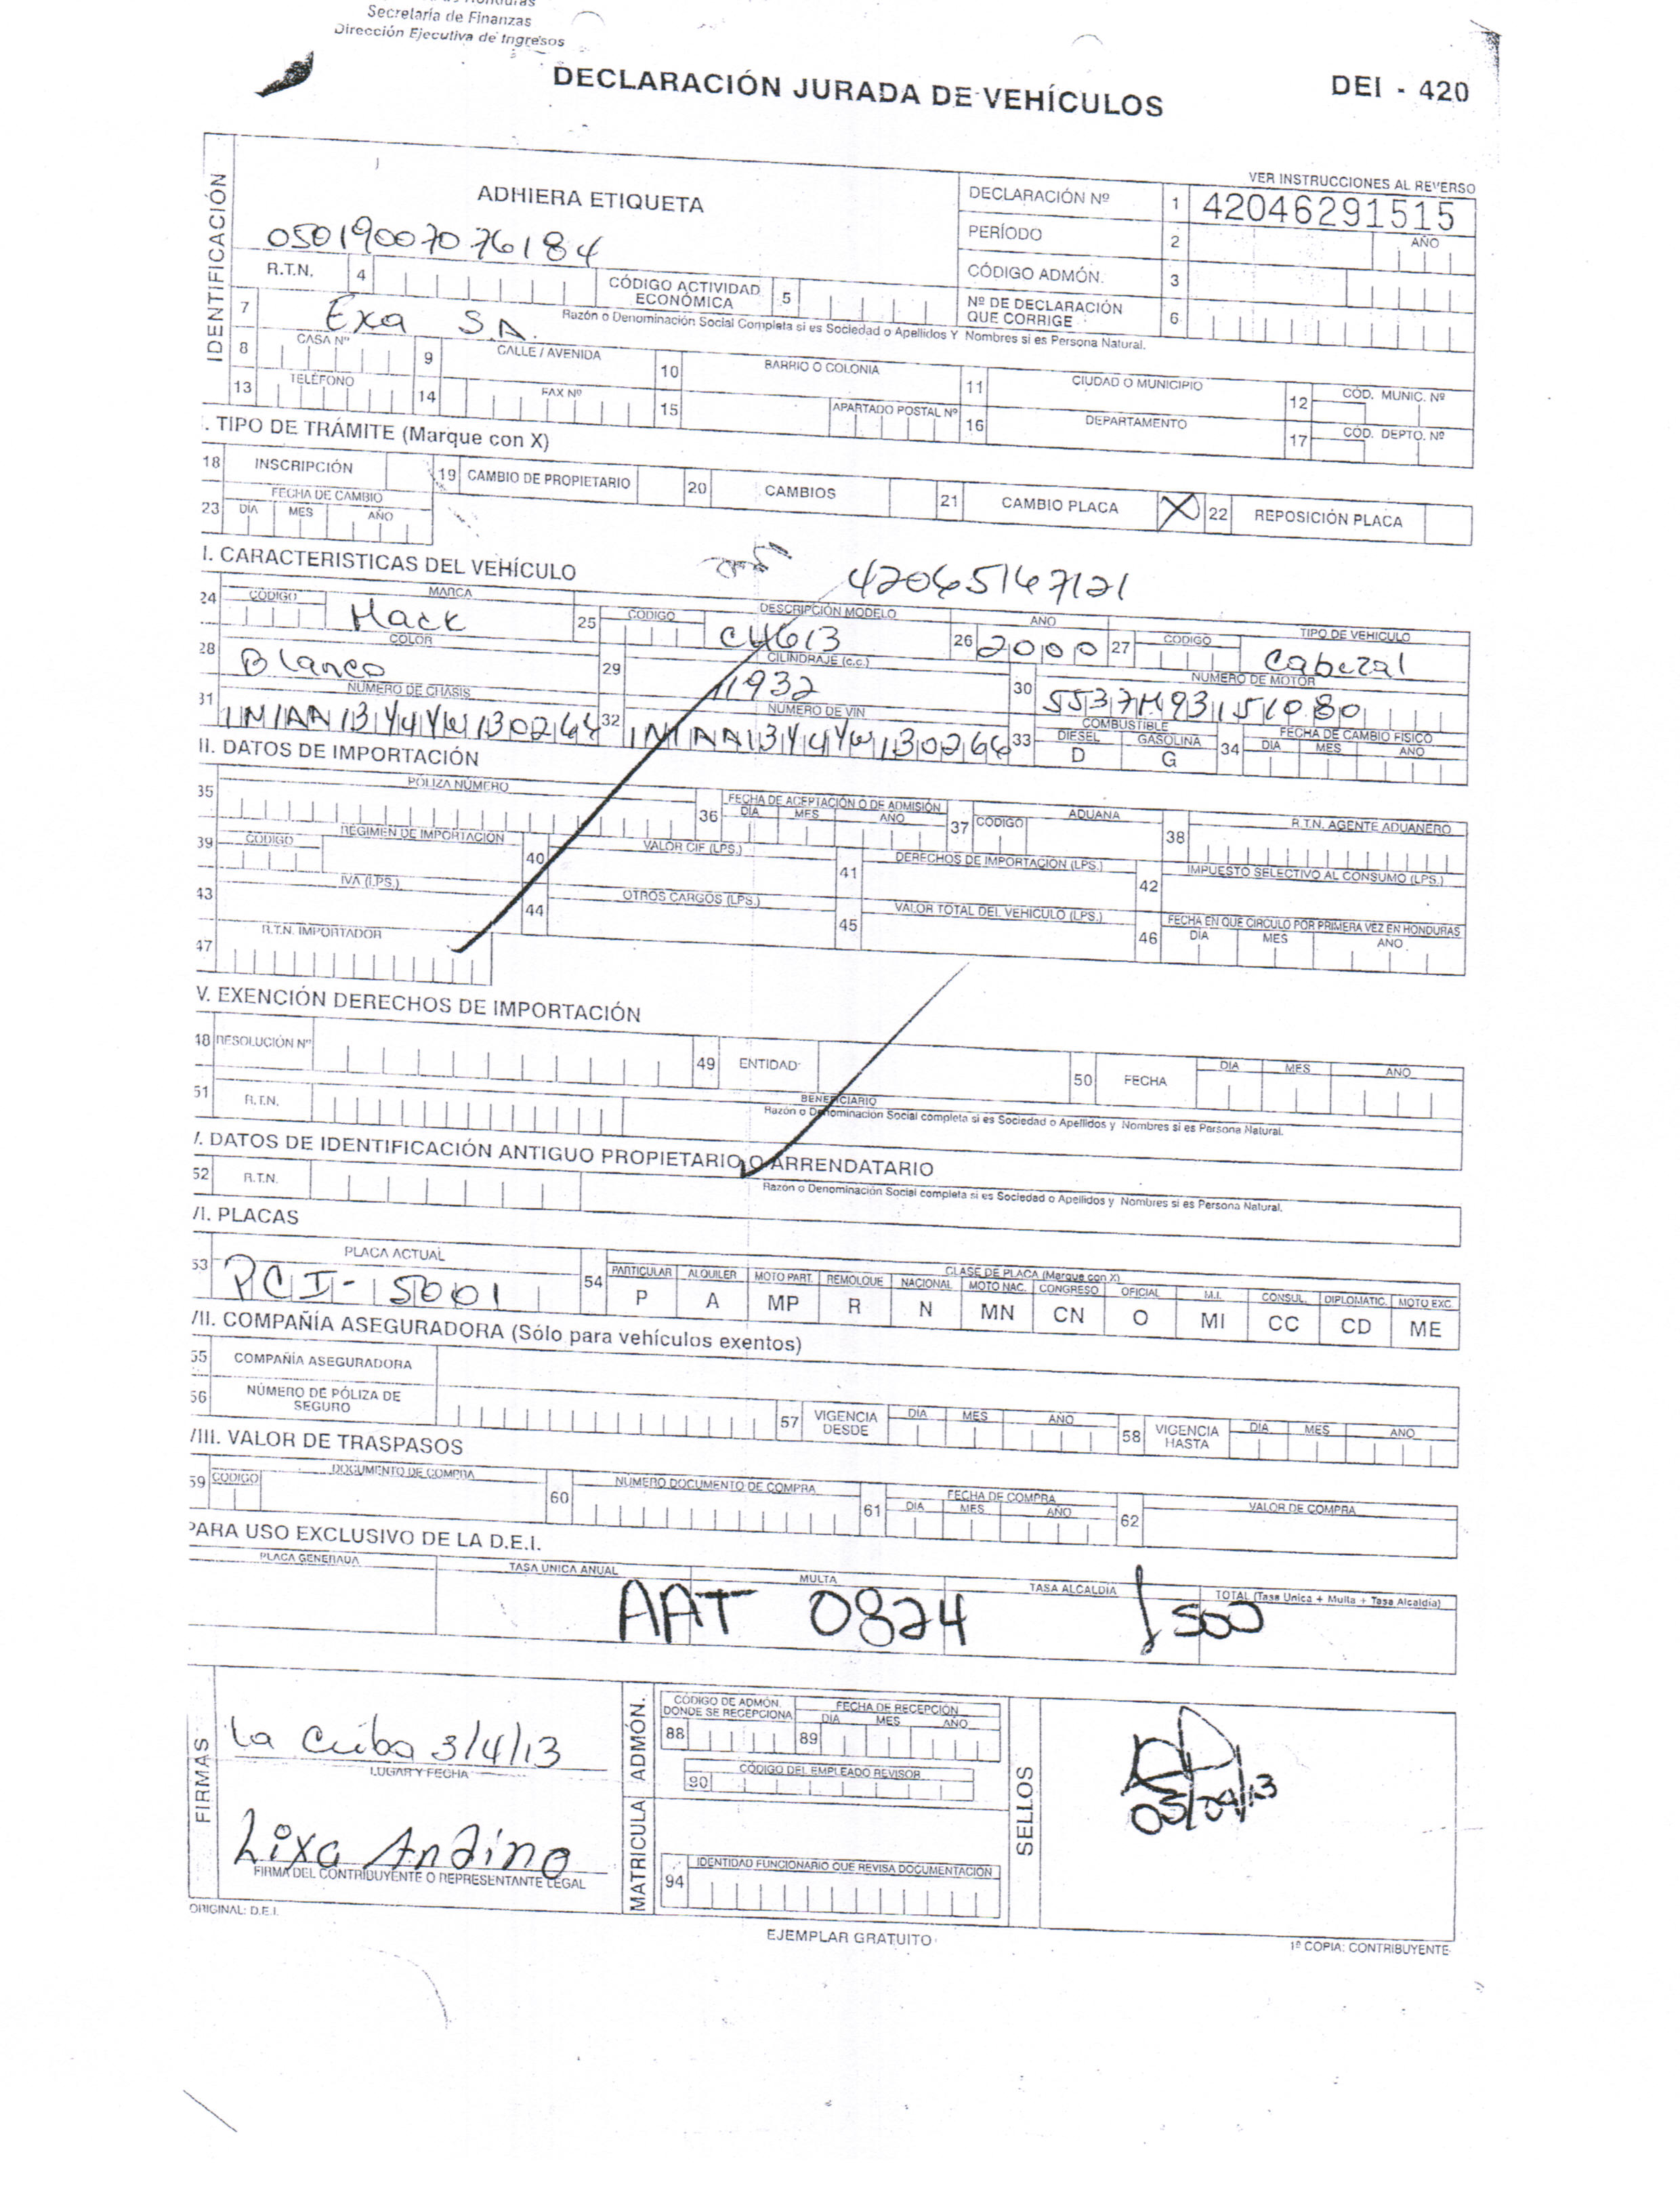 Secretaría de Finanzas
Dirección Ejecutiva de Ingresos
DECLARACIÓN JURADA DE VEHÍCULOS DEI - 420
VER INSTRUCCIONES AL REVERSO
IDENTIFICACIÓN
ADHIERA ETIQUETA
DECLARACIÓN Nº 1 42046291515
05019007076184
PERÍODO 2 AÑO
CÓDIGO ADMÓN. 3
R.T.N. 4 CÓDIGO ACTIVIDAD ECONÓMICA 5 Nº DE DECLARACIÓN QUE CORRIGE 6
7 Exa S.A.
Razón o Denominación Social Completa si es Sociedad o Apellidos Y Nombres si es Persona Natural.
8 CASA Nº 9 CALLE / AVENIDA 10 BARRIO O COLONIA 11 CIUDAD O MUNICIPIO 12 CÓD. MUNIC. Nº
13 TELÉFONO 14 FAX Nº 15 APARTADO POSTAL Nº 16 DEPARTAMENTO 17 CÓD. DEPTO. Nº
. TIPO DE TRÁMITE (Marque con X)
18 INSCRIPCIÓN 19 CAMBIO DE PROPIETARIO 20 CAMBIOS 21 CAMBIO PLACA X 22 REPOSICIÓN PLACA
23 FECHA DE CAMBIO DÍA MES AÑO
I. CARACTERISTICAS DEL VEHÍCULO
42065167121
24 CÓDIGO MARCA Mack 25 CODIGO DESCRIPCIÓN MODELO CH613 26 AÑO 2000 27 CODIGO TIPO DE VEHICULO Cabezal
28 COLOR Blanco 29 CILINDRAJE (c.c.) 11932 30 NUMERO DE MOTOR
31 NUMERO DE CHASIS 32 NUMERO DE VIN 33 COMBUSTIBLE DIESEL D GASOLINA G 34 FECHA DE CAMBIO FISICO DIA MES AÑO
II. DATOS DE IMPORTACIÓN
35 POLIZA NÚMERO 36 FECHA DE ACEPTACIÓN O DE ADMISIÓN DIA MES AÑO 37 CODIGO ADUANA 38 R.T.N. AGENTE ADUANERO
39 CODIGO REGIMEN DE IMPORTACION 40 VALOR CIF (LPS.) 41 DERECHOS DE IMPORTACIÓN (LPS.) 42 IMPUESTO SELECTIVO AL CONSUMO (LPS.)
43 IVA (LPS.) 44 OTROS CARGOS (LPS.) 45 VALOR TOTAL DEL VEHICULO (LPS.) 46 FECHA EN QUE CIRCULO POR PRIMERA VEZ EN HONDURAS DIA MES ANO
47 R.T.N. IMPORTADOR
V. EXENCIÓN DERECHOS DE IMPORTACIÓN
48 RESOLUCIÓN Nº 49 ENTIDAD 50 FECHA DIA MES ANO
51 R.T.N. BENEFICIARIO
Razón o Denominacion Social completa si es Sociedad o Apellidos y Nombres si es Persona Natural.
V. DATOS DE IDENTIFICACIÓN ANTIGUO PROPIETARIO O ARRENDATARIO
52 R.T.N.
Razón o Denominación Social completa si es Sociedad o Apellidos y Nombres si es Persona Natural.
VI. PLACAS
53 PLACA ACTUAL PCI-5001 54 CLASE DE PLACA (Marque con X)
PARTICULAR ALQUILER MOTO PART. REMOLQUE NACIONAL MOTO NAC. CONGRESO OFICIAL M.I. CONSUL. DIPLOMATIC. MOTO EXC.
P A MP R N MN CN O MI CC CD ME
VII. COMPAÑÍA ASEGURADORA (Sólo para vehículos exentos)
55 COMPAÑÍA ASEGURADORA
56 NÚMERO DE PÓLIZA DE SEGURO 57 VIGENCIA DESDE DIA MES AÑO 58 VIGENCIA HASTA DIA MES ANO
VIII. VALOR DE TRASPASOS
59 CODIGO DOCUMENTO DE COMPRA 60 NUMERO DOCUMENTO DE COMPRA 61 FECHA DE COMPRA DIA MES AÑO 62 VALOR DE COMPRA
PARA USO EXCLUSIVO DE LA D.E.I.
PLACA GENERADA TASA UNICA ANUAL MULTA TASA ALCALDIA TOTAL (Tasa Unica + Multa + Tasa Alcaldía)
AAT 0824 500
FIRMAS
La Ceiba 3/4/13
LUGAR Y FECHA
Lixa Andino
FIRMA DEL CONTRIBUYENTE O REPRESENTANTE LEGAL
MATRICULA ADMÓN.
CÓDIGO DE ADMÓN. DONDE SE RECEPCIONA 88 FECHA DE RECEPCIÓN DIA MES AÑO 89
90 CÓDIGO DEL EMPLEADO REVISOR
94 IDENTIDAD FUNCIONARIO QUE REVISA DOCUMENTACIÓN
SELLOS
03/04/13
ORIGINAL: D.E.I.
EJEMPLAR GRATUITO
1ª COPIA: CONTRIBUYENTE